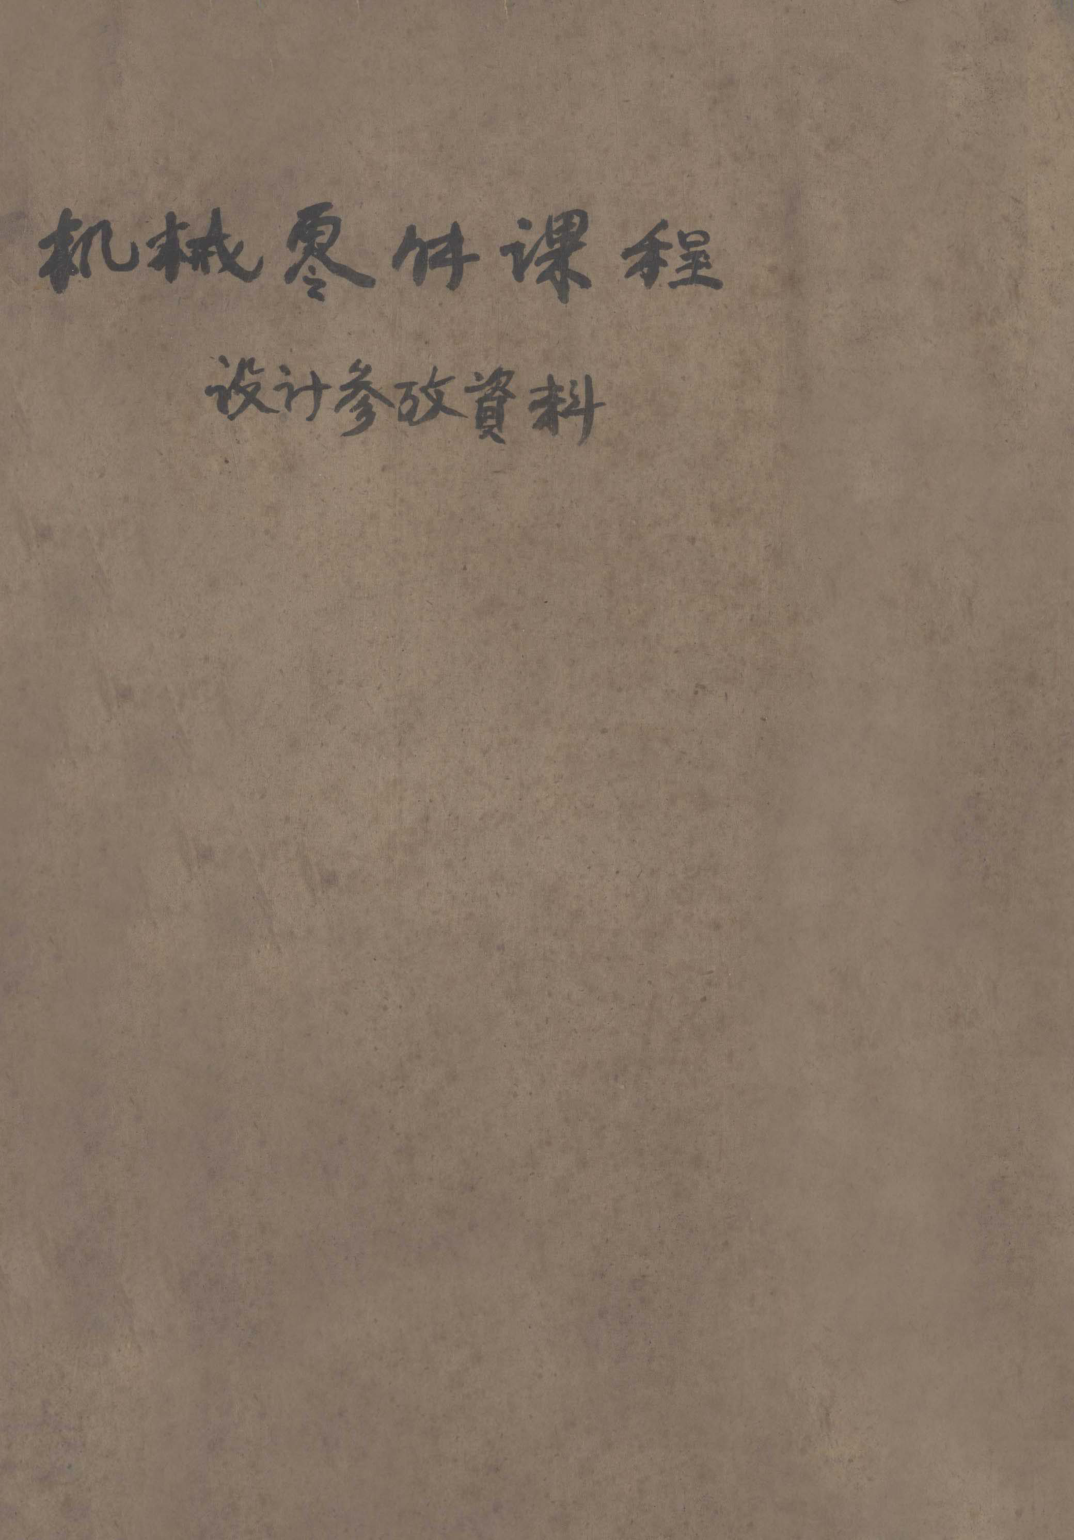 机械零件课程
设计参攷資料